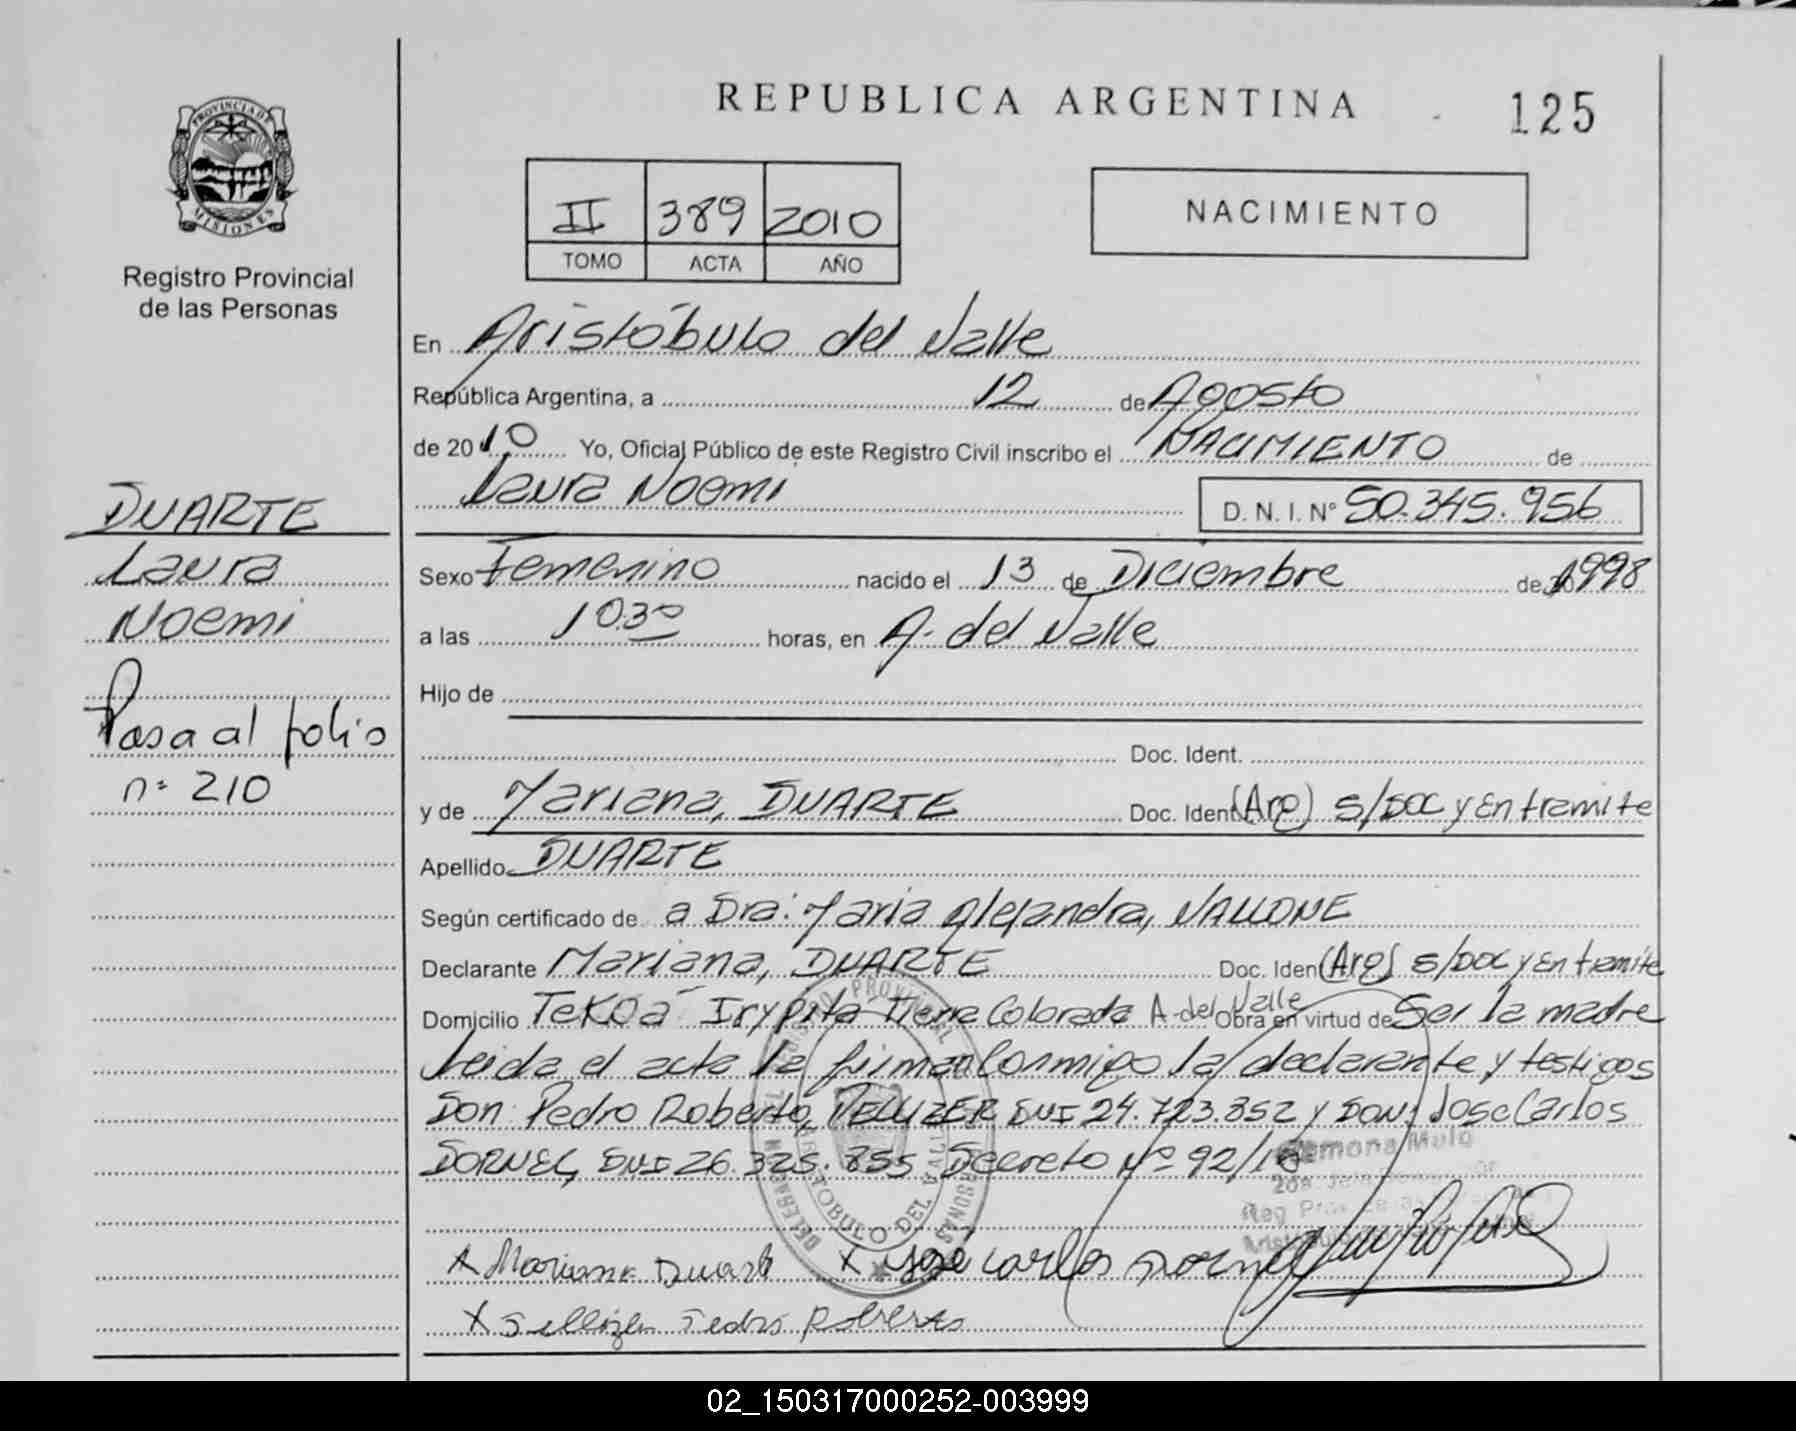 REPUBLICA ARGENTINA
125
PROVINCIA DE
MISIONES
Registro Provincial
de las Personas
II 389 2010
TOMO ACTA AÑO
NACIMIENTO
En Aristóbulo del Valle
República Argentina, a 12 de Agosto
de 2010 Yo, Oficial Público de este Registro Civil inscribo el NACIMIENTO de
Laura Noemi D. N. I. Nº 50.345.956
DUARTE
Laura
Noemi
Pasa al folio
nº 210
Sexo Femenino nacido el 13 de Diciembre de 1998
a las 10:30 horas, en A. del Valle
Hijo de
Doc. Ident.
y de Mariana, DUARTE Doc. Ident (Arg) S/DOC y En tramite
Apellido DUARTE
Según certificado de a Dra: Maria Alejandra, VALLONE
Declarante Mariana, DUARTE Doc. Iden (Arg) S/DOC y En tramite
Domicilio TeKOa Iry pita Tierra Colorada A. del Valle Obra en virtud de Ser la madre
Leida el acta la firman Conmigo la declarante y testigos
Don: Pedro Roberto, DNI 24.723.852 y DON: Jose Carlos
DORNEL, DNI 26.325.855 Decreto Nº 92/10
DELEGACION DEL REGISTRO PROVINCIAL PERSONAS
ARISTOBULO DEL VALLE
Ramona
Reg
X Mariana Duarte X José Carlos Dornel
X Pedro Roberto
02_150317000252-003999